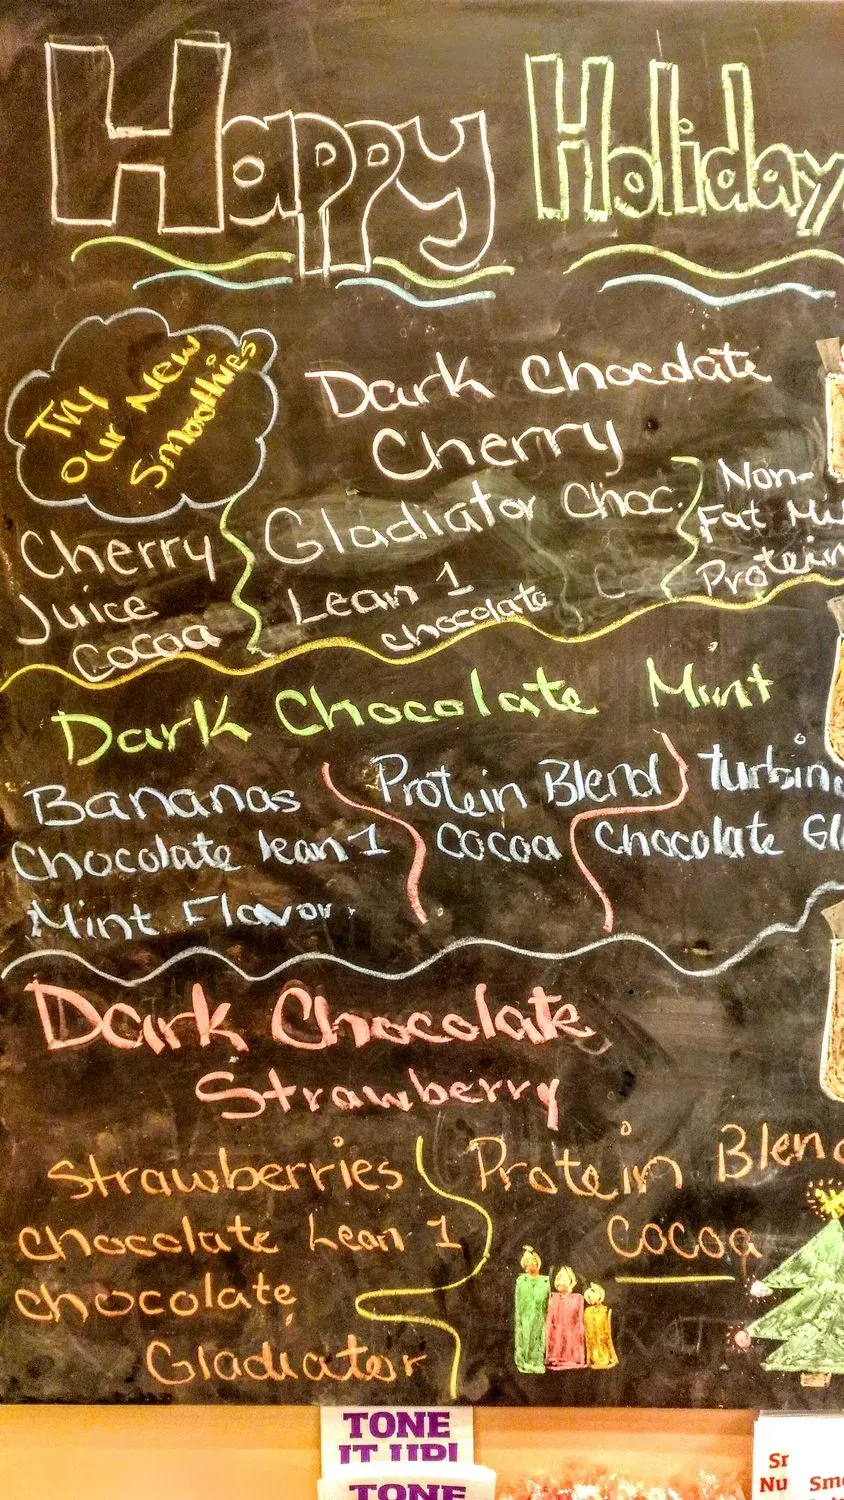 Happy Holiday
Try
Our New
Smoothies
Dark Chocolate
Cherry
Cherry
Juice
Cocoa
Gladiator Choc.
Lean 1
chocolate
Non-
Fat
Protein
Dark Chocolate Mint
Bananas
Chocolate lean 1
Mint Flavor.
Protein Blend
Cocoa
Chocolate
Dark Chocolate
Strawberry
Strawberries
chocolate Lean 1
chocolate
Gladiator
Protein Blend
Cocoa
TONE
IT UP!
TONE